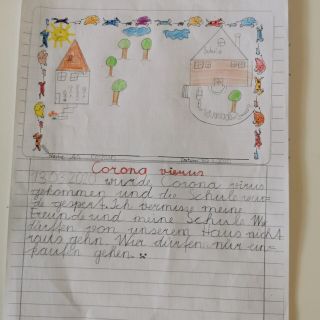 Schule
Corona vierus
wurde Corona virus
gekommen und die Schule wur-
de gespert. Ich vermisse meine
freunde und meine Schule. Wir
dürfen von unserem Haus nicht
raus gehn. Wir dürfen nur ein-
kaufen gehen.